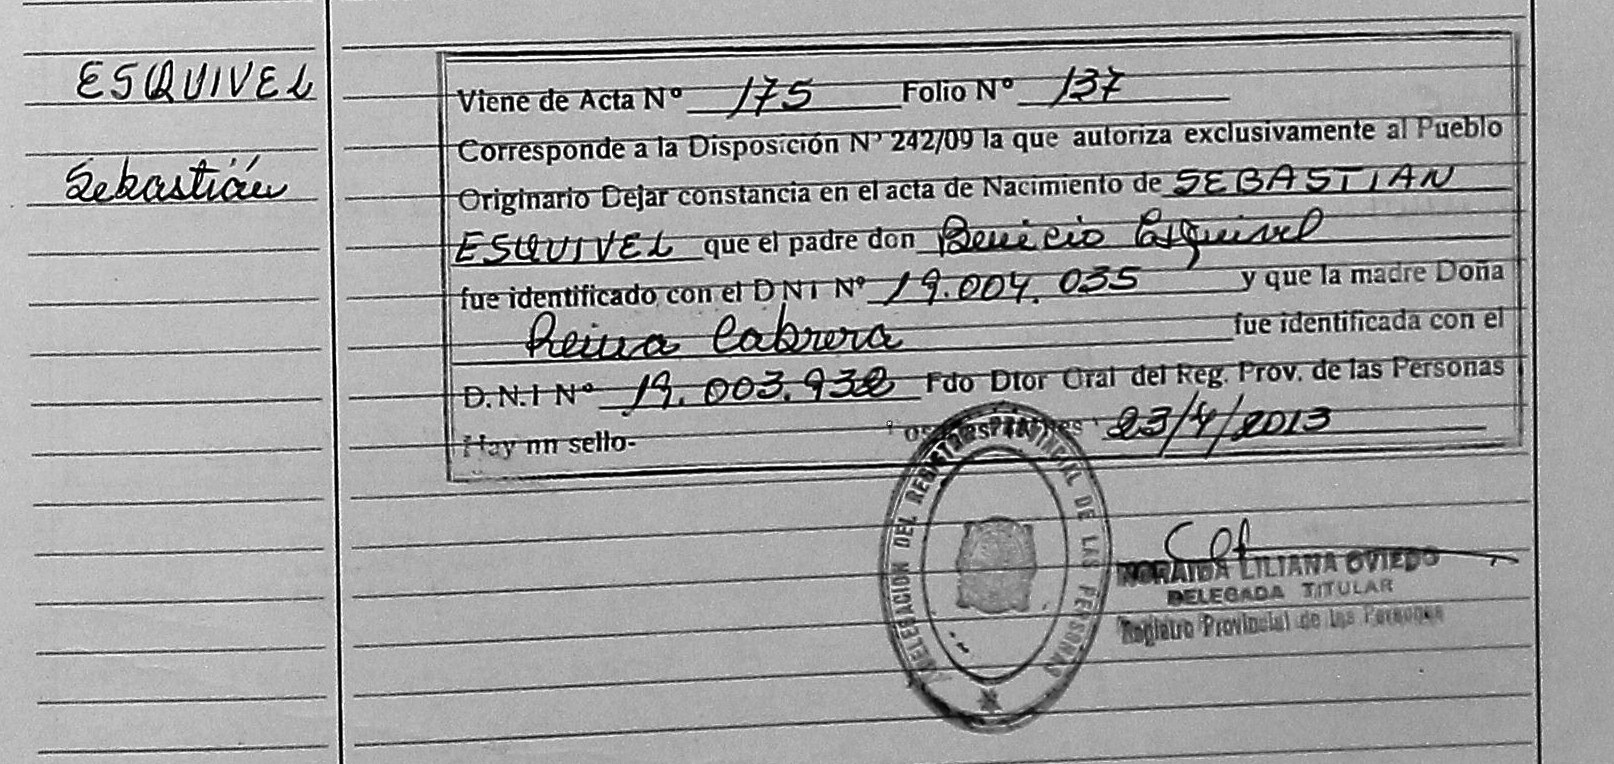 ESQUIVEL
Sebastián
Viene de Acta Nº 175 Folio Nº 137
Corresponde a la Disposición Nº 242/09 la que autoriza exclusivamente al Pueblo
Originario Dejar constancia en el acta de Nacimiento de SEBASTIAN
ESQUIVEL que el padre don Benicio Esquivel
fue identificado con el D.N.I Nº 19.004.035 y que la madre Doña
Reina Cabrera fue identificada con el
D.N.I Nº 19.003.938 Fdo Dtor Gral del Reg. Prov. de las Personas
Hay un sello- 23/4/2013
DELEGACION DEL REGISTRO PROVINCIAL DE LAS PERSONAS
NORAIDA LILIANA OVIEDO
DELEGADA TITULAR
Registro Provincial de las Personas